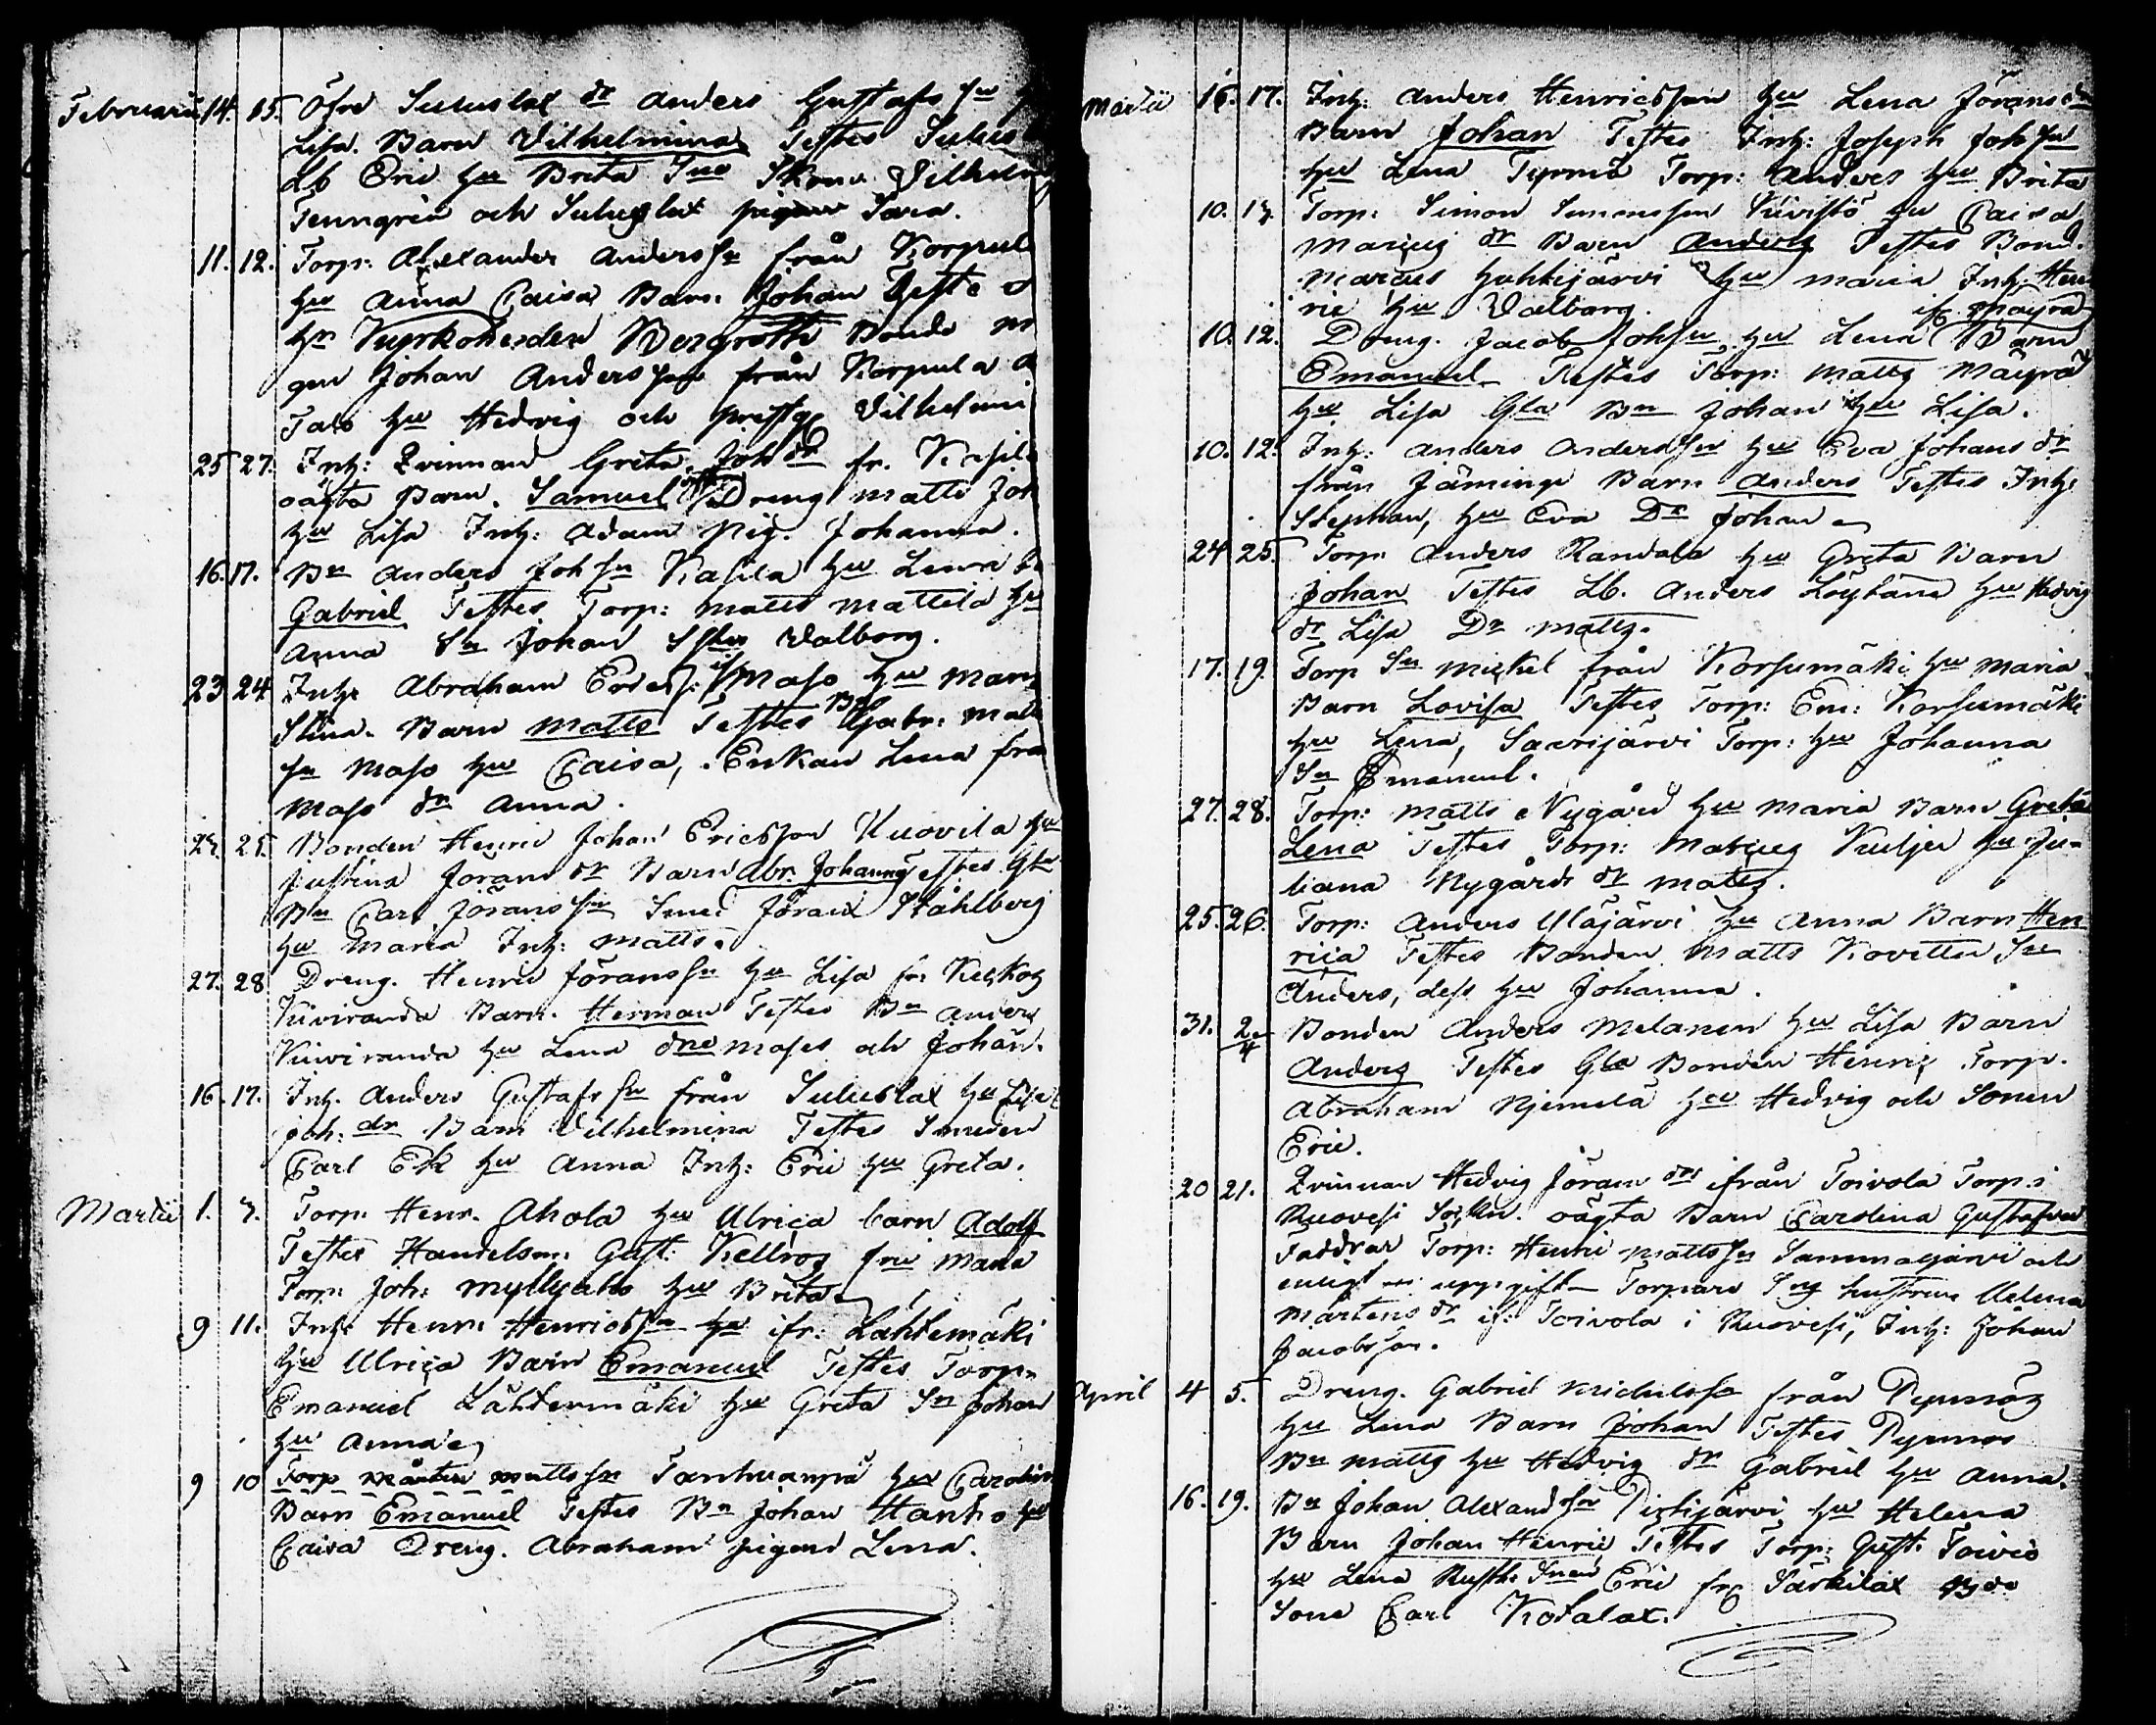 Februarii 14. 15. Öfre Suluslax dr Anders Gustafs sn
Lisa. Barn Vilhelmina Testes Sulus
Lb Eric hu Brita Vilhelm
Tenngrén och Suluslax pigan Sara.
11. 12. Torp: Alexander Anders sn från Korpul
hu Anna Caisa Barn: Johan Teste
hr Kyrkoherden Bergroth Bonde
gen Johan Andersson från Korpula
hu Hedvig och Vilhelmi
25 27. Inh: Qvinnan Greta Joh dr fr. Kasil
oägta Barn. Samuel Dreng Matts Joh
hu Lisa Inh: Adam Pig. Johanna.
16. 17. Bn Anders Joh sn Kasila hu Lena
Gabriel Testes Torp: Matts Mattila hu
Anna Sn Johan Valborg.
23 24 Inh: Abraham Erics: Maso hu Mari
Stina. Barn Matts Testes Gabr: Matts
sn Maso hu Caisa, Enkan Lena från
Maso dr Anna.
25. Bonden Henric Johan Ericsson Kuovila hu
Justina Jörans dr Barn Abr. Johannes Testes Gla
Bn Carl Jörans sn Smed Jöran Ståhlberg
hu Maria Inh: Matts.
27. 28 Dreng. Henric Jörans sn hu Lisa fr.
Kiviranda Barn. Herman Testes Bn Anders
Kiviranda hu Lena Moses och Johan.
16. 17. Inh. Anders Gustafs sn från Suluslax hu Lisa
Joh: dr Barn Vilhelmina Testes Smeden
Carl Ek hu Anna Inh: Eric hu Greta.
Martii 1. 3. Torp: Henr. Ahola hu Ulrica barn Adolf
Testes Handelsm: Gust: Kellros fru Maria
Torp: Joh: Myllyaho hu Brita
9 11. Inh: Henr: Henrics sn ifr: Lähtemäki
hu Ulrica Barn Emanuel Testes Torp:
Emanuel Lähtemäki hu Greta Sn Johan
hu Anna
9 10 Torp Mårten Matts sn Tanhuanpä hu Carolin
Barn Emanuel Testes Bn Johan Hanho hu
Caisa Dreng. Abraham pigan Lena.
Martii 16. 17. Inh: Anders Henricsson hu Lena Jörans dr
Barn Johan Testes Inh: Joseph Joh sn
hu Lena Tyrmä Torp: Anders hu Brita
10. 13. Torp: Simon Simonsson Kiviistö hu Caisa
Marcus dr Barn Anders Testes Bond.
Marcus Huhkijärvi hu Maria Inh: Hen
ric hu Valborg. if: Mäyrä
10. 12. Dreng. Jacob Joh sn hu Lena Barn
Emanuel Testes Torp: Matts Mäyrä
hu Lisa Gla Bn Johan hu Lisa.
10. 12. Inh: Anders Anders sn hu Eva Johans dr
från Jäminge Barn Anders Testes Inh:
Stephan, hu Eva Dr Johan
24 25. Torp: Anders Randala hu Greta Barn
Johan Testes Lb. Anders Löytäne hu Hedvig
dr Lisa Dr Matts.
17. 19. Torp Sn Mickel från Korsumäki hu Maria
Barn Lovisa Testes Torp: Em: Korsumäki
hu Lena, Saarijärvi Torp: hu Johanna
Sn Emanuel.
27. 28. Torp: Matts Nygård hu Maria Barn Greta
Lena Testes Torp: Mattias Kuljer hu Ju-
liana Nygårds dr Matts.
25. 26. Torp: Anders Uläjärvi hu Anna Barn Hen
rica Testes Bonden Matts Kovetta Sn
Anders, dess hu Johanna.
31. 2/4 Bonden Anders Melanen hu Lisa Barn
Anders Testes Gla Bonden Henric Torp.
Abraham Njemelä hu Hedvig och Sonen
Eric.
20 21. Qvinnan Hedvig Jörans dr ifrån Toivola Torp i
Ruovesi Sockn. oägta Barn Carolina Gustafva
Faddrar Torp: Henric Matts sn Sammasjärvi och
enligt uppgift Torpare hustrun Helena
Mårtens dr if: Toivola i Ruovesi, Inh: Johan
Jacobsson.
April 4 5. Dreng. Gabriel Michels sn från Pynnäs
hu Lena Barn Johan Testes Pynnäs
Bn Matts hu Hedvig dr Gabriel hu Anna.
16. 19. Bn Johan Alexand sn Pitkijärvi hu Helena
Barn Johan Henric Testes Torp: Gust: Toivio
hu Lena Rusth: Eric fr. Särkilax
Sone Carl Kotalax.